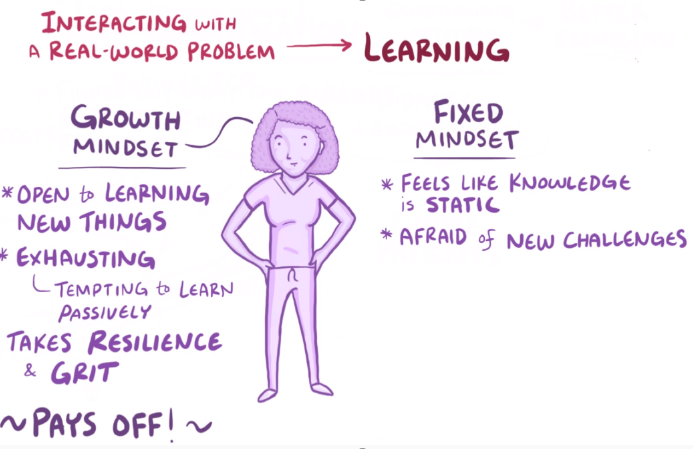 INTERACTING WITH
A REAL-WORLD PROBLEM → LEARNING
GROWTH
MINDSET
* OPEN to LEARNING
NEW THINGS
* EXHAUSTING
TEMPTING to LEARN
PASSIVELY
TAKES RESILIENCE
& GRIT
~ PAYS OFF! ~
FIXED
MINDSET
* FEELS LIKE KNOWLEDGE
is STATIC
* AFRAID of NEW CHALLENGES